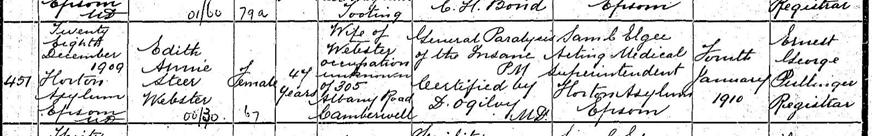 Epsom Tooting C. H. Bond Epsom Registrar
UD 01/60 79a
451
Twenty
eighth
December
1909
Horton
Asylum
Epsom
UD
Edith
Annie
Steer
Webster
00/30
Female
67
47
years
Wife of
Webster
occupation
unknown
of 305
Albany Road
Camberwell
General Paralysis
of the Insane
PM
Certified by
D. Ogilvy
MD
Saml Elgee
Acting Medical
Superintendent
Horton Asylum
Epsom
Fourth
January
1910
Ernest
George
Pullinger
Registrar